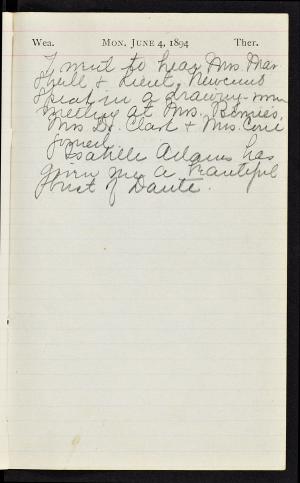 Wea. MON. JUNE 4, 1894 Ther.
I went to hear Mrs. Mar
shall & Lieut. Newcomb
speak in a drawing-room
meeting at Mrs. Bemies.
Mrs Dr. Clark & Mrs.
joined.
Isabelle Adams has
given me a beautiful
bust of Dante.